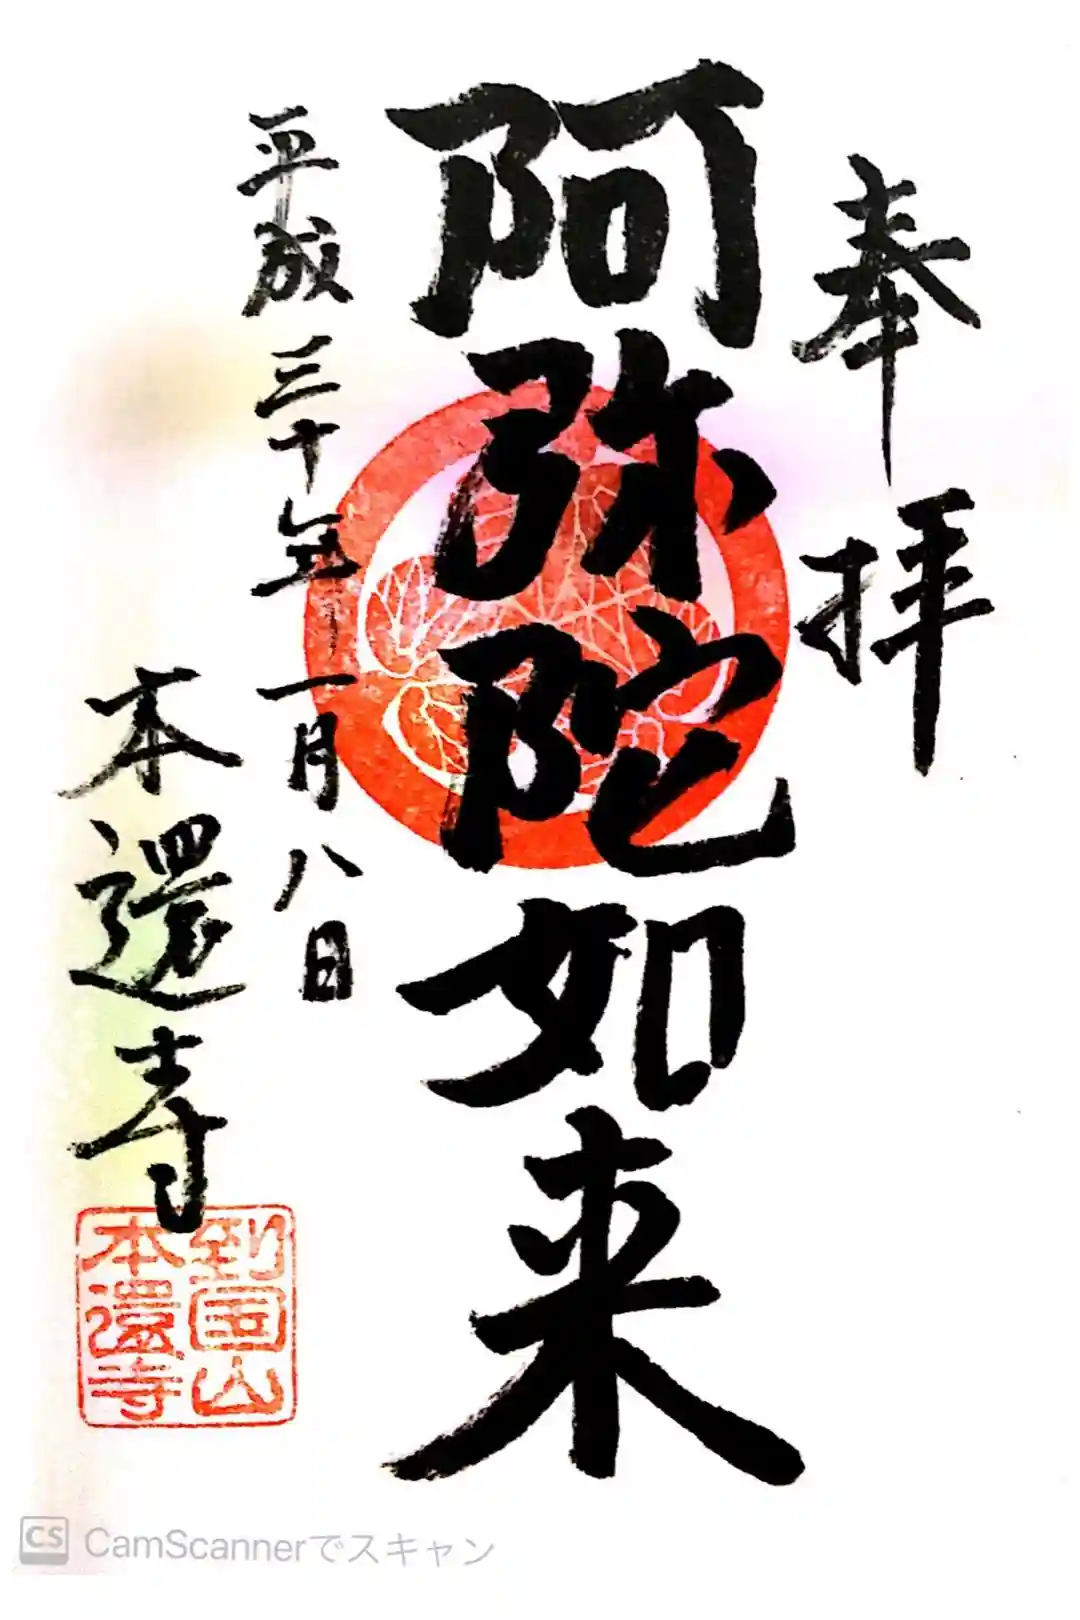 奉拝
阿弥陀如来
平成三十年一月八日
本還寺
到国山
本還寺
CS CamScannerでスキャン